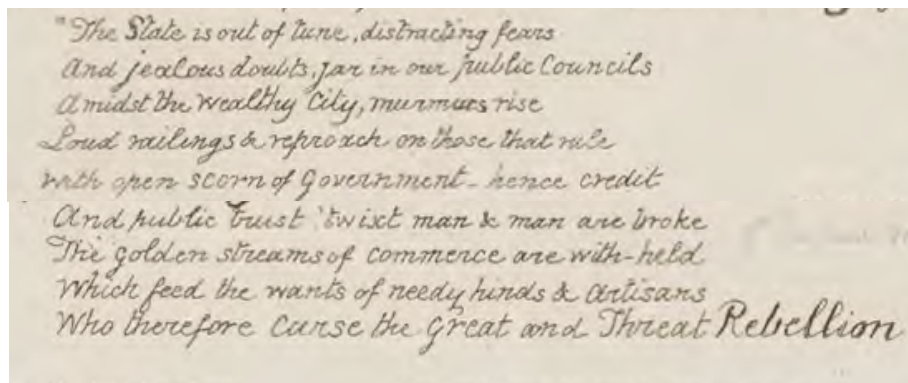 "The State is out of tune, distracting fears
And jealous doubts, jar in our public Councils
Amidst the wealthy City, murmurs rise
Loud railings & reproach on those that rule
with open scorn of Government - hence credit
And public trust 'twixt man & man are broke
The golden streams of commerce are with-held
Which feed the wants of needy hinds & Artisans
Who therefore Curse the Great and Threat Rebellion